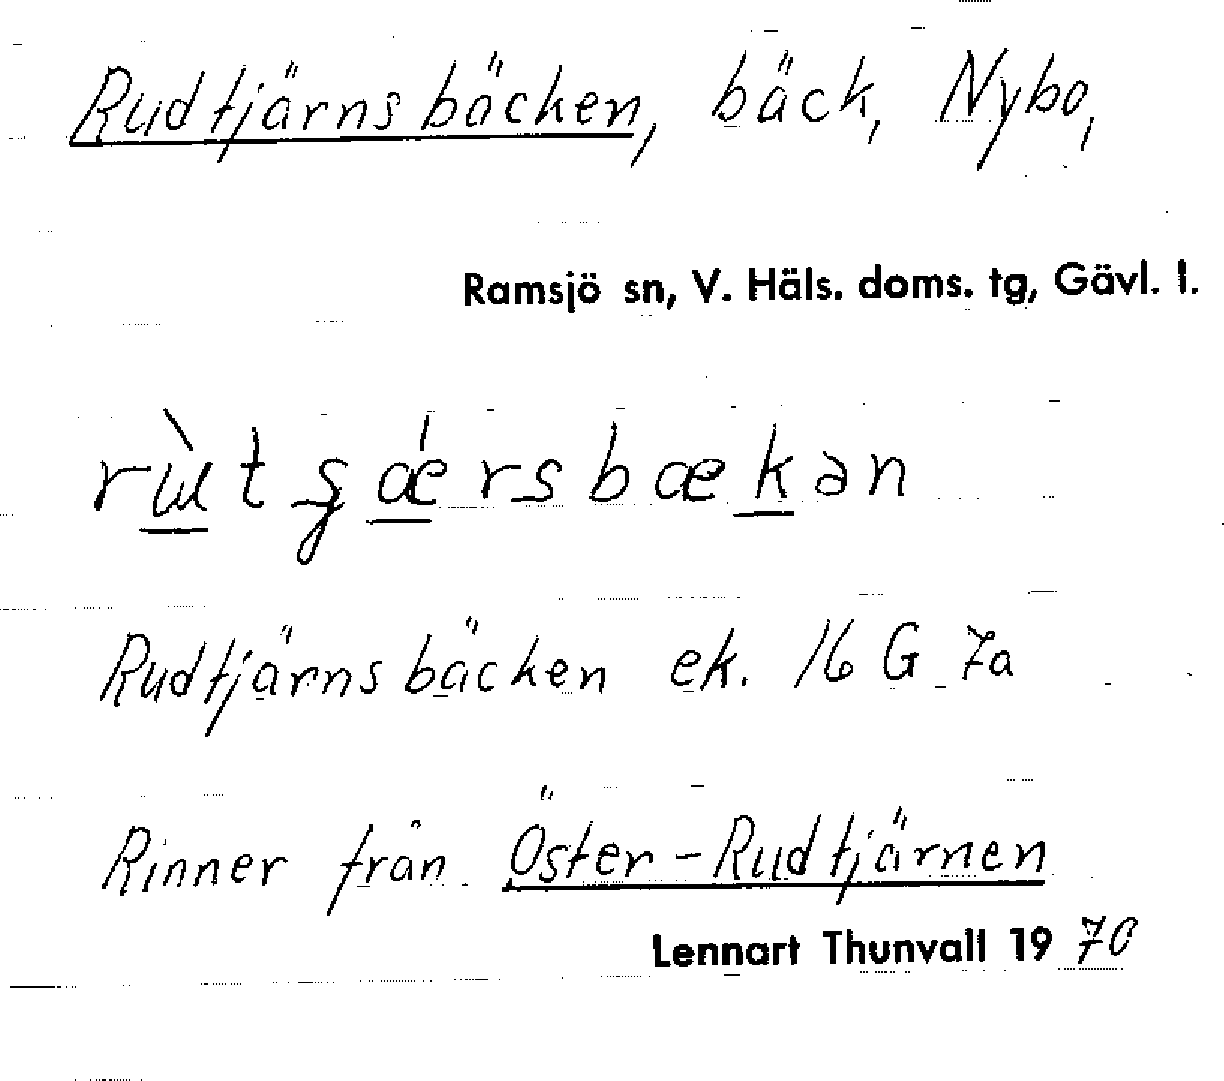 Rudtjärnsbäcken, bäck, Nybo,
Ramsjö sn, V. Häls. doms. tg, Gävl. l.
Rudtjärnsbäcken ek. 16 G 7a
Rinner från Öster-Rudtjärnen
Lennart Thunvall 1970